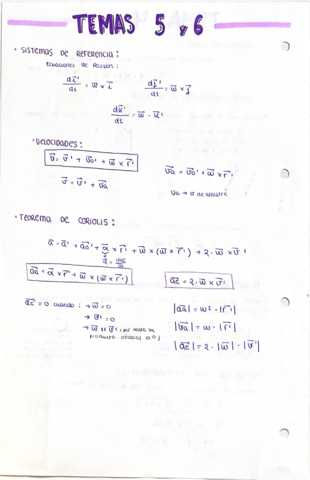 TEMAS 5 y 6
· SISTEMAS DE REFERENCIA:
Ecuaciones de Poisson:
di⃗'/dt = w⃗ × i⃗ dj⃗'/dt = w⃗ × j⃗
dk⃗'/dt = w⃗ · k⃗'
· VELOCIDADES:
v⃗ = v⃗' + v⃗o' + w⃗ × r⃗' v⃗a = v⃗o' + w⃗ × r⃗'
v⃗ = v⃗' + v⃗a
va → v de arrastre
· TEOREMA DE CORIOLIS:
a⃗ = a⃗' + a⃗o' + α⃗ × r⃗' + w⃗ × (w⃗ × r⃗') + 2 · w⃗ × v⃗'
α⃗ = dw⃗/dt
a⃗a = α⃗ × r⃗' + w⃗ × (w⃗ × r⃗') a⃗c = 2 · w⃗ × v⃗'
a⃗c = 0 cuando: → w⃗ = 0
→ v⃗' = 0
→ w⃗ ıı v⃗' (por tanto su
producto vectorial es 0)
|a⃗a| = w² · |r⃗'|
|v⃗a| = w · |r⃗'|
|a⃗c| = 2 · |w⃗| · |v⃗'|